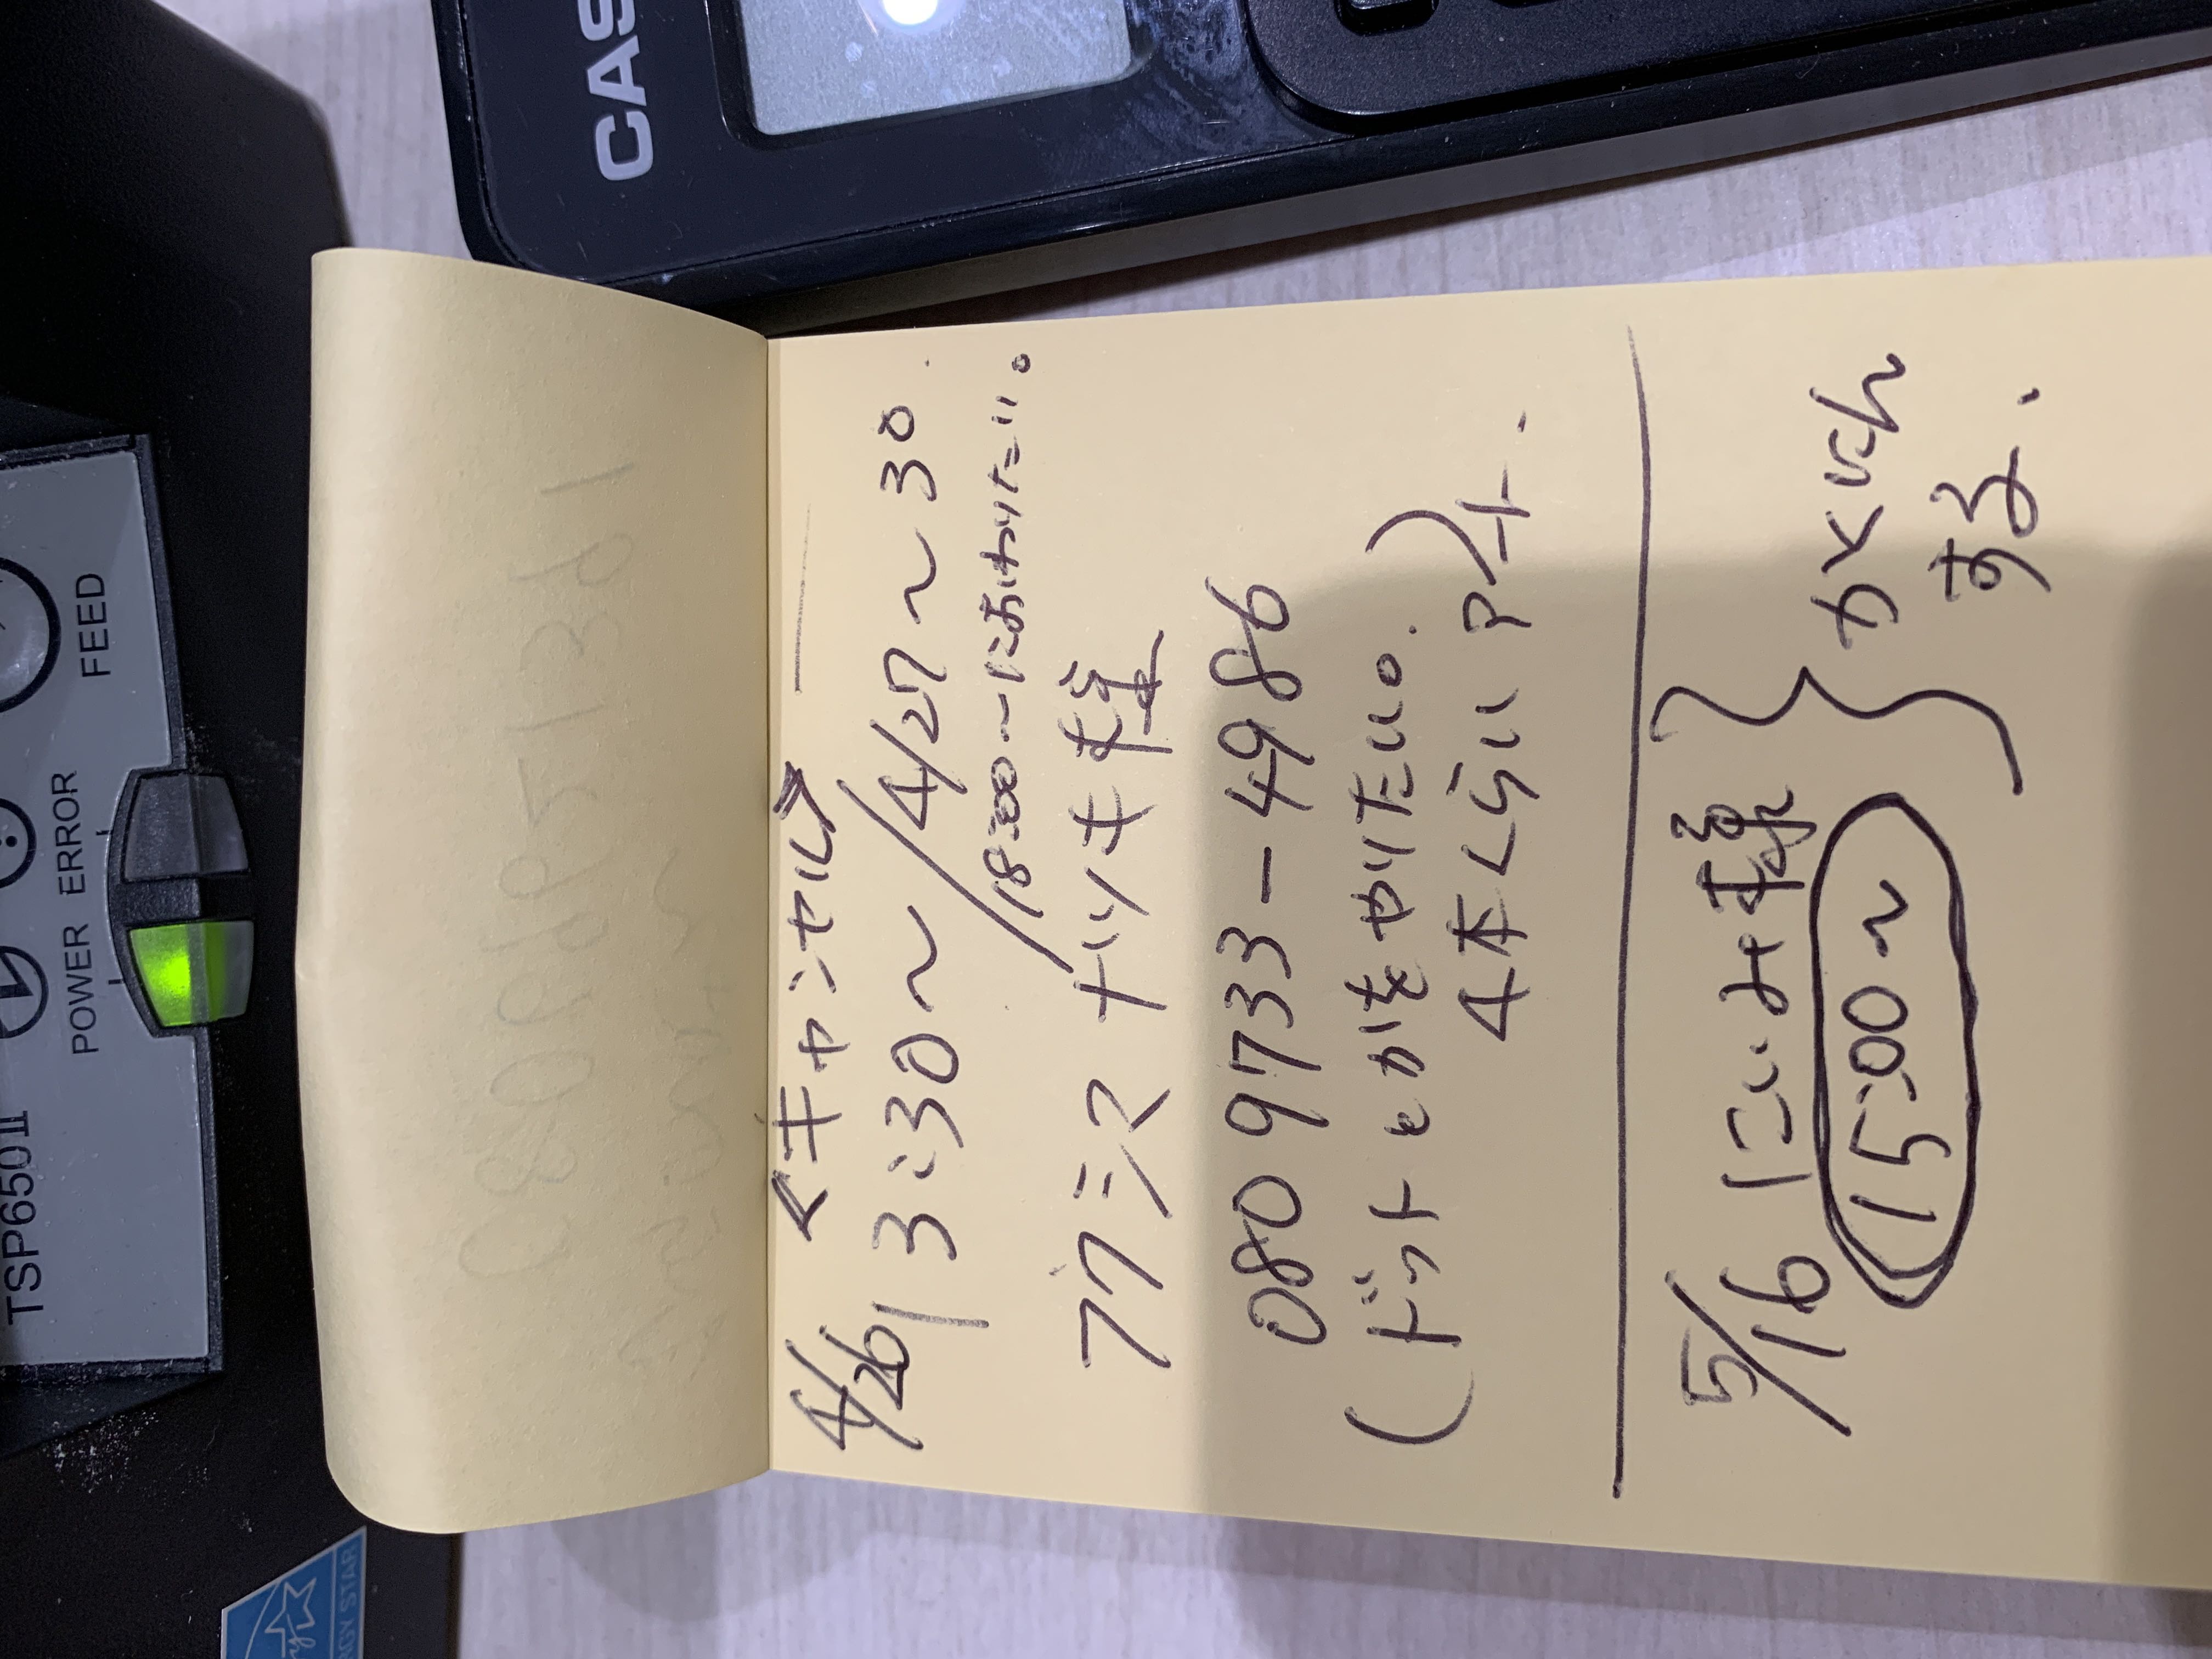 TSP650II
POWER ERROR
FEED
RGY STAR
CAS
<キャンセル>
4/26 13:30〜 / 4/27〜30.
18:00〜におわりたい。
フクシマ ナツキ様
080 9733-4986
(ドットとかをやりたい。.
4本くらいアート.)
5/16 にいみ様
15:00〜
かくにん
する.